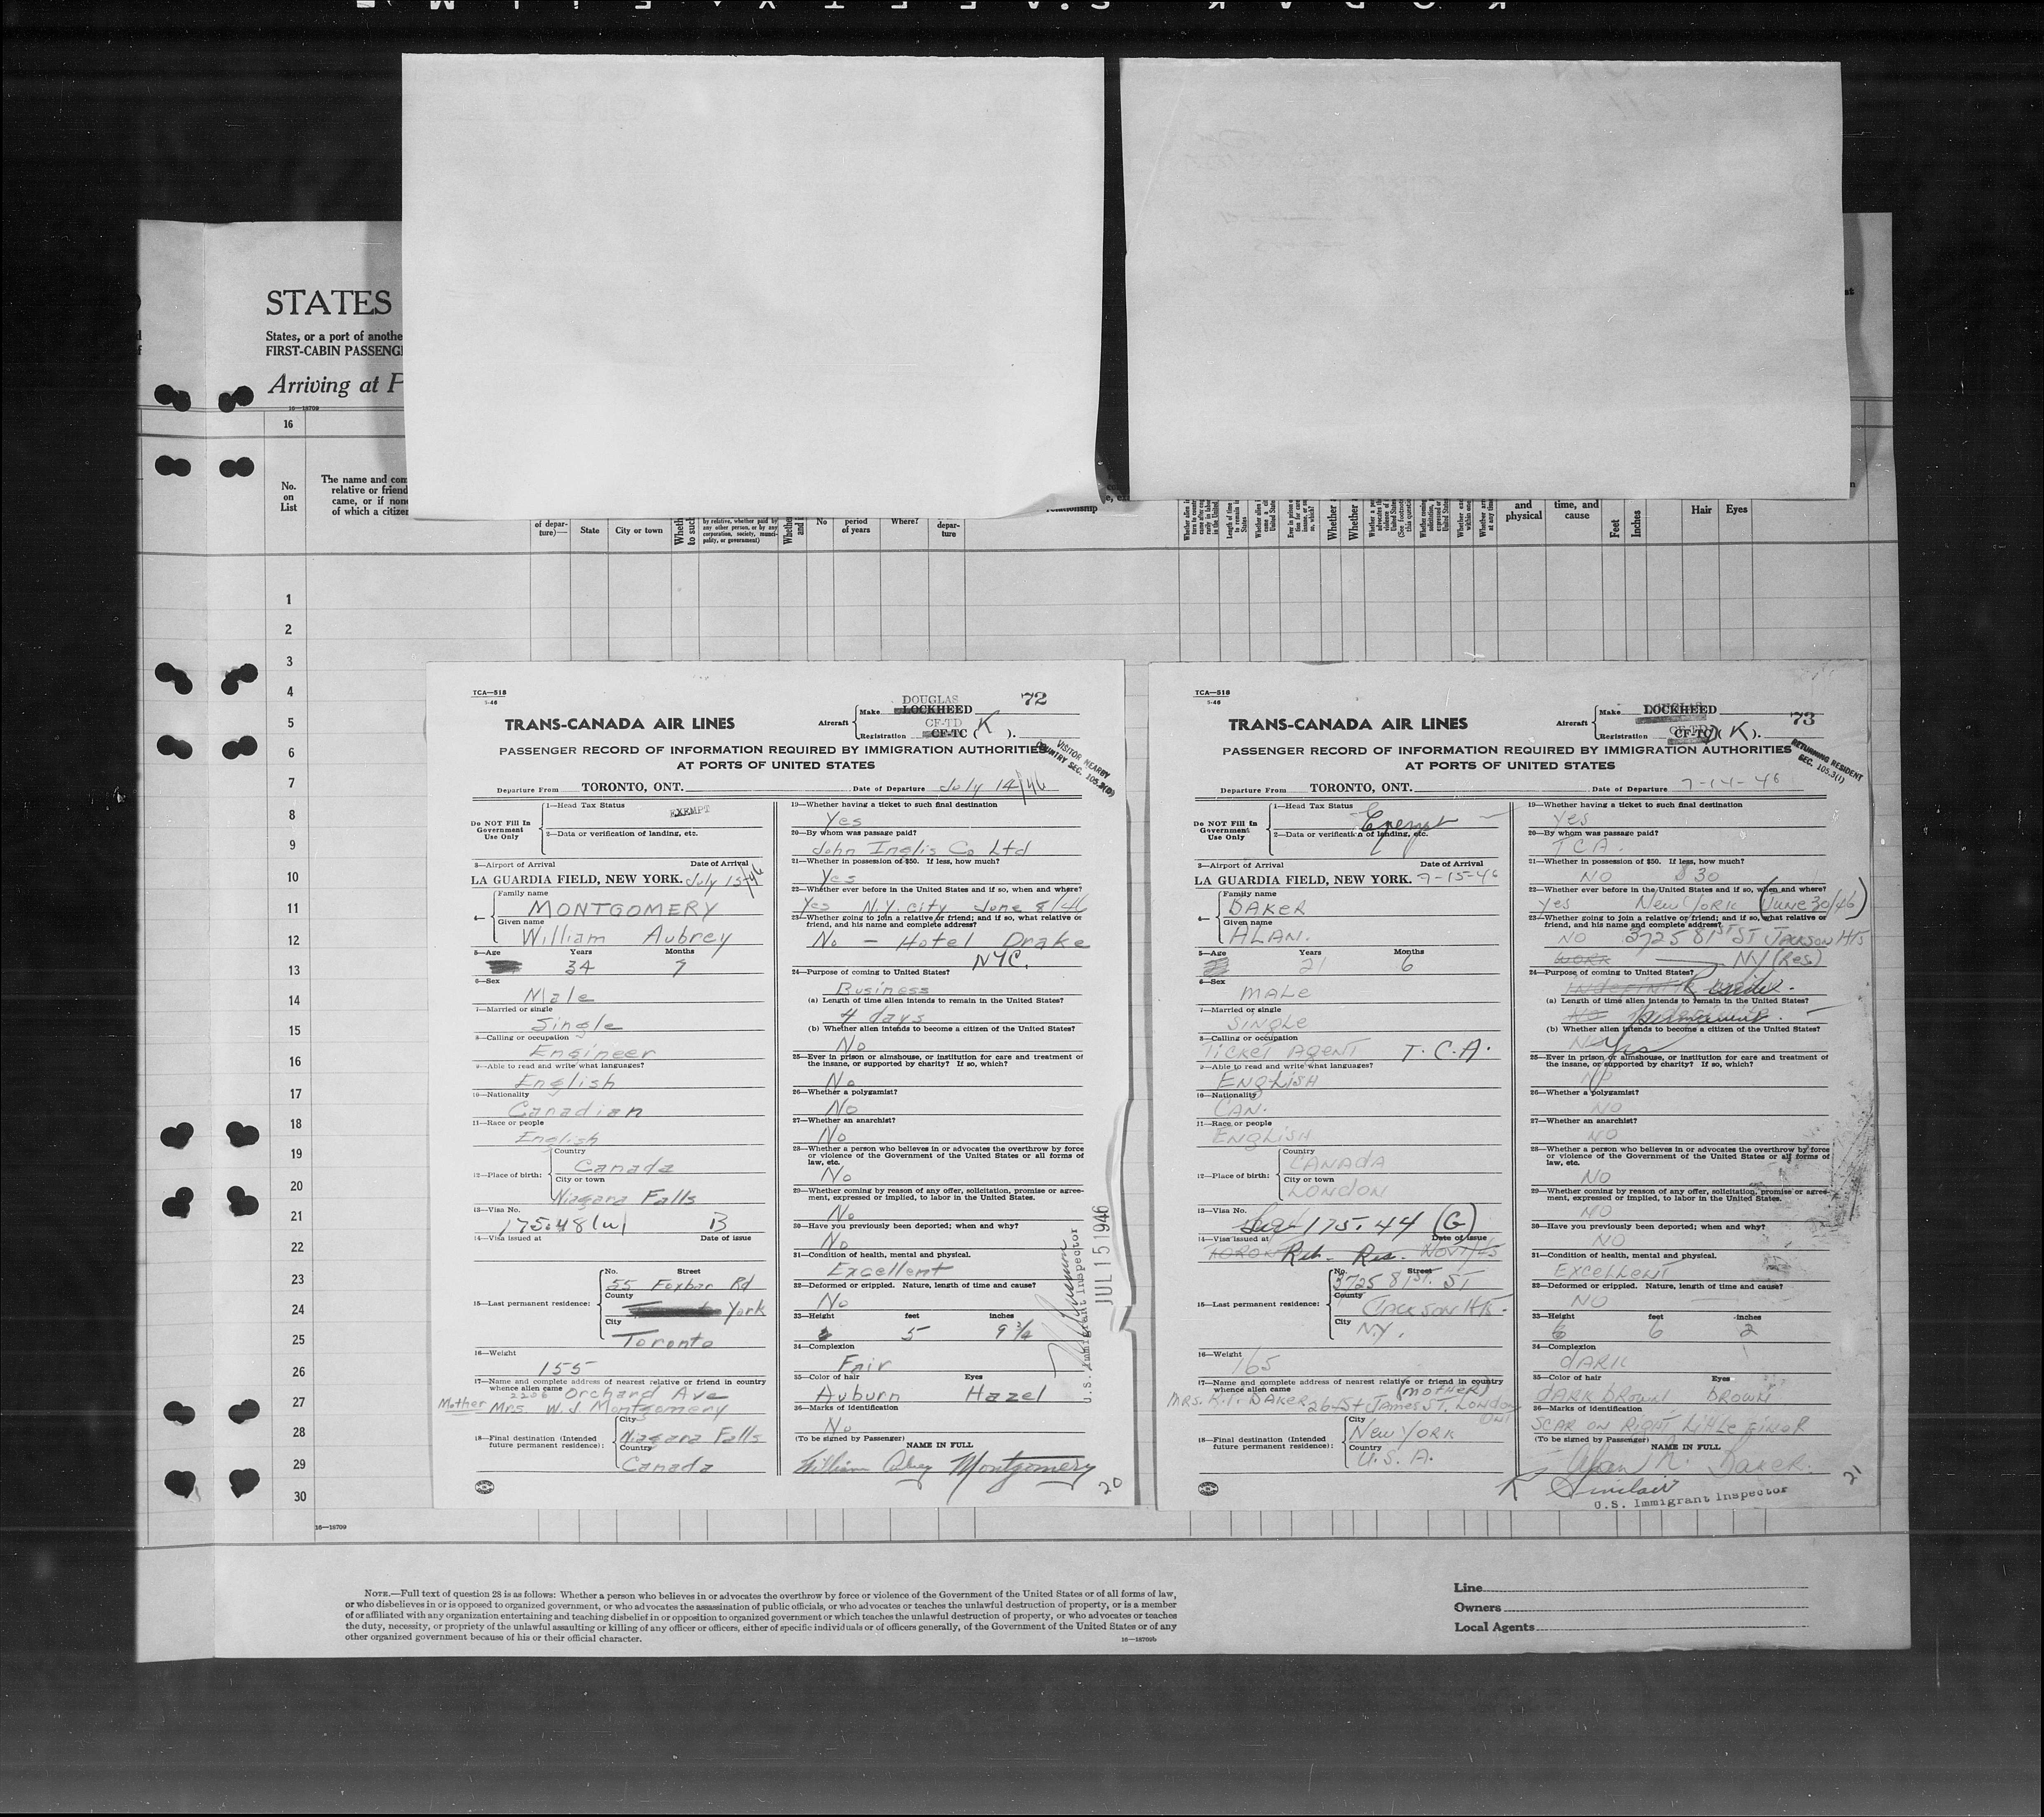 KODAK SAFETY FILM
STATES
States, or a port of anothe
FIRST-CABIN PASSENG
Arriving at P
16—18709
16
No.
on
List
The name and com
relative or friend
came, or if none
of which a citizen
of depar-
ture)—
State
City or town
by relative, whether paid by
any other person, or by any
corporation, society, munici-
pality, or government)
No
period
of years
Where?
depar-
ture
relationship
and
physical
time, and
cause
Feet
Inches
Hair
Eyes
1
2
3
4
5
6
7
8
9
10
11
12
13
14
15
16
17
18
19
20
21
22
23
24
25
26
27
28
29
30
16—18709
TCA—518
72
TRANS-CANADA AIR LINES
Aircraft
Make DOUGLAS LOCKHEED
Registration CF-TD CF-TC ( K ).
PASSENGER RECORD OF INFORMATION REQUIRED BY IMMIGRATION AUTHORITIES
AT PORTS OF UNITED STATES
VISITOR NEARBY
COUNTRY SEC. 105.3(D)
Departure From TORONTO, ONT. Date of Departure July 14/46
Do NOT Fill In
Government
Use Only
1—Head Tax Status EXEMPT
2—Data or verification of landing, etc.
3—Airport of Arrival Date of Arrival
LA GUARDIA FIELD, NEW YORK. July 15/46
4—
Family name
MONTGOMERY
Given name
William Aubrey
5—Age Years Months
34 7
6—Sex
Male
7—Married or single
Single
8—Calling or occupation
Engineer
9—Able to read and write what languages?
English
10—Nationality
Canadian
11—Race or people
English
12—Place of birth:
Country
Canada
City or town
Niagara Falls
13—Visa No.
175.48(w) B
14—Visa issued at Date of issue
15—Last permanent residence:
No. Street
55 Foxbar Rd
County
York
City
Toronto
16—Weight
155
17—Name and complete address of nearest relative or friend in country
whence alien came
Orchard Ave
Mother Mrs. W. J. Montgomery
18—Final destination (Intended
future permanent residence):
City
Niagara Falls
Country
Canada
19—Whether having a ticket to such final destination
Yes
20—By whom was passage paid?
John Inglis Co Ltd
21—Whether in possession of $50. If less, how much?
Yes
22—Whether ever before in the United States and if so, when and where?
Yes N.Y. city June 8/46
23—Whether going to join a relative or friend; and if so, what relative or
friend, and his name and complete address?
No — Hotel Drake
NYC.
24—Purpose of coming to United States?
Business
(a) Length of time alien intends to remain in the United States?
4 days
(b) Whether alien intends to become a citizen of the United States?
No
25—Ever in prison or almshouse, or institution for care and treatment of
the insane, or supported by charity? If so, which?
No
26—Whether a polygamist?
No
27—Whether an anarchist?
No
28—Whether a person who believes in or advocates the overthrow by force
or violence of the Government of the United States or all forms of
law, etc.
No
29—Whether coming by reason of any offer, solicitation, promise or agree-
ment, expressed or implied, to labor in the United States.
No
30—Have you previously been deported; when and why?
No
31—Condition of health, mental and physical.
Excellent
32—Deformed or crippled. Nature, length of time and cause?
No
33—Height feet inches
5 9 3/4
34—Complexion
Fair
35—Color of hair Eyes
Auburn Hazel
36—Marks of identification
No
(To be signed by Passenger)
NAME IN FULL
William Aubrey Montgomery
20
U.S. Immigrant Inspector
JUL 15 1946
TCA—518
73
TRANS-CANADA AIR LINES
Aircraft
Make DOUGLAS LOCKHEED
Registration CF-TC ( K ).
PASSENGER RECORD OF INFORMATION REQUIRED BY IMMIGRATION AUTHORITIES
AT PORTS OF UNITED STATES
RETURNING RESIDENT
SEC. 105.3(1)
Departure From TORONTO, ONT. Date of Departure 7-14-46
Do NOT Fill In
Government
Use Only
1—Head Tax Status
Exempt
2—Data or verification of landing, etc.
3—Airport of Arrival Date of Arrival
LA GUARDIA FIELD, NEW YORK. 7-15-46
4—
Family name
BAKER
Given name
ALAN.
5—Age Years Months
21 6
6—Sex
MALE
7—Married or single
SINGLE
8—Calling or occupation
TICKET AGENT T.C.A.
9—Able to read and write what languages?
ENGLISH
10—Nationality
CAN.
11—Race or people
ENGLISH
12—Place of birth:
Country
CANADA
City or town
LONDON
13—Visa No.
175.44 (G)
14—Visa issued at Date of issue
TORON Ret. Res. NOV 1/45
15—Last permanent residence:
No. Street
3725 81ST. ST
County
JACKSON HTS.
City
N.Y.
16—Weight
165
17—Name and complete address of nearest relative or friend in country
whence alien came (MOTHER)
MRS. BAKER 264 St JAMES ST. LONDON
ONT
18—Final destination (Intended
future permanent residence):
City
NEW YORK
Country
U.S.A.
19—Whether having a ticket to such final destination
YES
20—By whom was passage paid?
TCA.
21—Whether in possession of $50. If less, how much?
NO $30
22—Whether ever before in the United States and if so, when and where?
YES NEW YORK (JUNE 30/46)
23—Whether going to join a relative or friend; and if so, what relative or
friend, and his name and complete address?
NO 3725 81ST ST JACKSON HTS
WORK NY (Res)
24—Purpose of coming to United States?
INDEFINITE Reside.
(a) Length of time alien intends to remain in the United States?
NO Permanent.
(b) Whether alien intends to become a citizen of the United States?
NO Yes
25—Ever in prison or almshouse, or institution for care and treatment of
the insane, or supported by charity? If so, which?
NO
26—Whether a polygamist?
NO
27—Whether an anarchist?
NO
28—Whether a person who believes in or advocates the overthrow by force
or violence of the Government of the United States or all forms of
law, etc.
NO
29—Whether coming by reason of any offer, solicitation, promise or agree-
ment, expressed or implied, to labor in the United States.
NO
30—Have you previously been deported; when and why?
NO
31—Condition of health, mental and physical.
EXCELLENT
32—Deformed or crippled. Nature, length of time and cause?
NO
33—Height feet inches
6 2
34—Complexion
DARK
35—Color of hair Eyes
DARK BROWN BROWN
36—Marks of identification
SCAR ON RIGHT LITTLE FINGER
(To be signed by Passenger)
NAME IN FULL
Alan R. Baker.
Sinclair
U.S. Immigrant Inspector
21
NOTE.—Full text of question 28 is as follows: Whether a person who believes in or advocates the overthrow by force or violence of the Government of the United States or of all forms of law,
or who disbelieves in or is opposed to organized government, or who advocates the assassination of public officials, or who advocates or teaches the unlawful destruction of property, or is a member
of or affiliated with any organization entertaining and teaching disbelief in or opposition to organized government or which teaches the unlawful destruction of property, or who advocates or teaches
the duty, necessity, or propriety of the unlawful assaulting or killing of any officer or officers, either of specific individuals or of officers generally, of the Government of the United States or of any
other organized government because of his or their official character.
16—18709b
Line
Owners
Local Agents